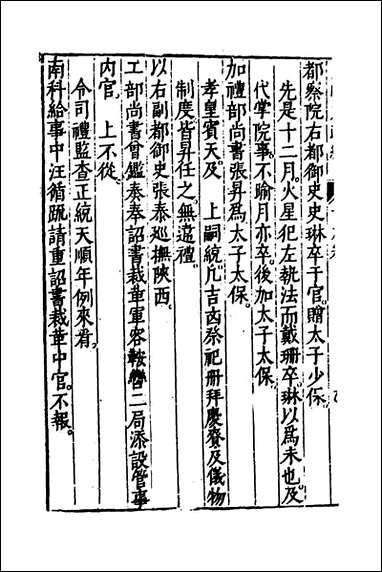 都察院右都御史史琳卒于官。贈太子少保。
先是十二月。火星犯左執法而戴珊卒。琳以爲未也及
代掌院事。不踰月亦卒。後加太子太保。
加禮部尚書張昇爲太子太保。
孝皇賓天及　上嗣統凡吉凶祭祀册拜慶賚及儀物
制度皆昇任之。無違禮。
以右副都御史張泰巡撫陝西。
工部尚書曾鑑奏奉詔書裁革軍器鞍轡二局添設管事
内官。上不從。
令司禮監查正統天順年例來看。
南科給事中汪循疏請重詔書裁革中官。不報。